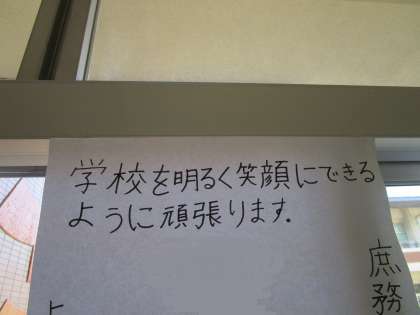 学校を明るく笑顔にできる
ように頑張ります.
庶務